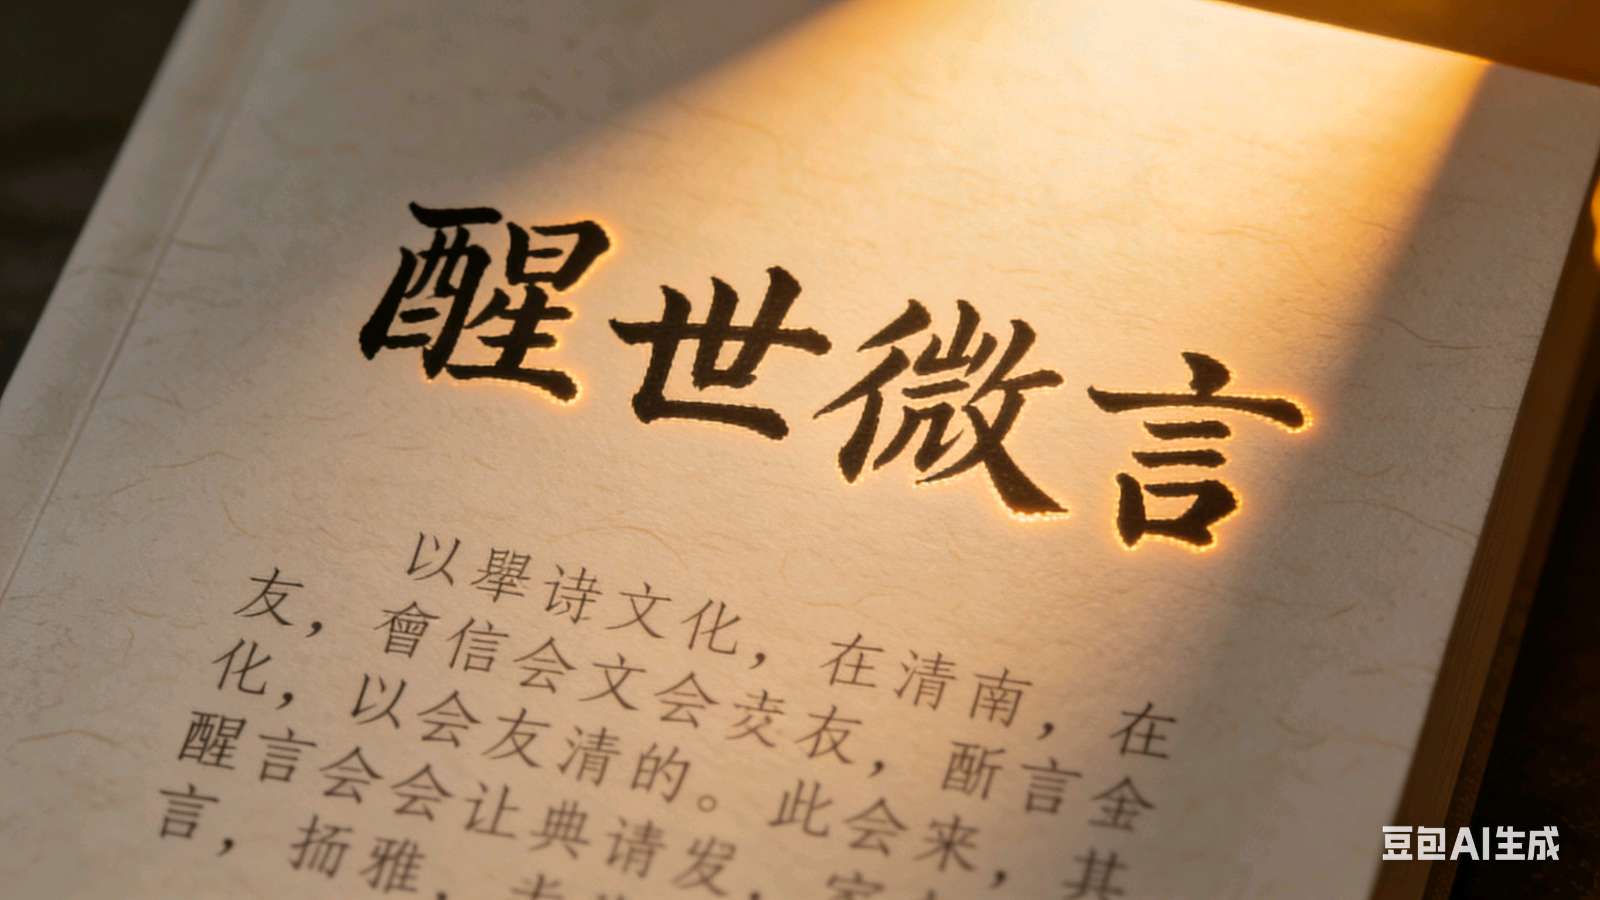 醒世微言
以舉诗文化，在清南，在
友，會信会文会友，言金
化，以会友清的。此会来，其
醒言会会让典请发，
言，扬雅，
豆包AI生成